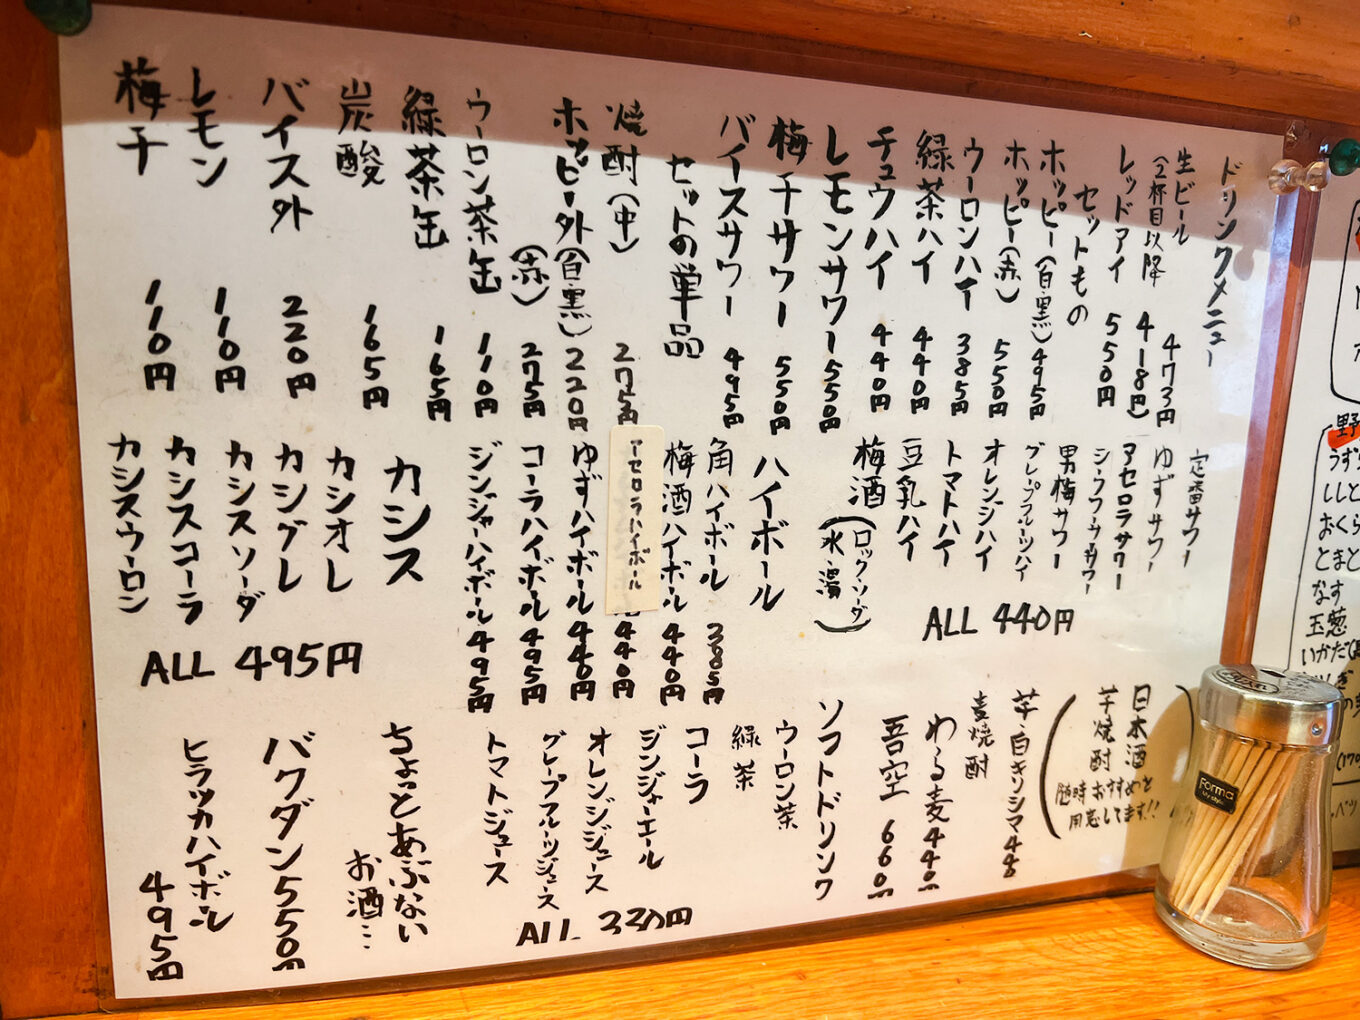 ドリンクメニュー
生ビール 473円
(2杯目以降 418円)
レッドアイ 550円
セットもの
ホッピー(白・黒) 495円
ホッピー(赤) 550円
ウーロンハイ 385円
緑茶ハイ 440円
チュウハイ 440円
レモンサワー 550円
梅干サワー 550円
バイスサワー 495円
セットの単品
焼酎(中) 275円
ホッピー外(白・黒) 220円
(赤) 275円
ウーロン茶缶 110円
緑茶缶 165円
炭酸 165円
バイス外 220円
レモン 110円
梅干 110円
定番サワー
ゆずサワー
アセロラサワー
シークワーサワー
男梅サワー
グレープフルーツハイ
オレンジハイ
トマトハイ
豆乳ハイ
ALL 440円
梅酒(ロック・ソーダ
水・湯)
ハイボール
角ハイボール 385円
梅酒ハイボール 440円
アセロラハイボール 440円
ゆずハイボール 440円
コーラハイボール 495円
ジンジャーハイボール 495円
カシス
カシオレ
カシグレ
カシスソーダ
カシスコーラ
カシスウーロン
ALL 495円
日本酒
芋焼酎
随時おすすめを
用意してます!!
芋・白キリシマ 440
麦焼酎
わる麦 440円
吾空 660円
ソフトドリンク
ウーロン茶
緑茶
コーラ
ジンジャーエール
オレンジジュース
グレープフルーツジュース
トマトジュース
ALL 330円
ちょっとあぶない
お酒…
バクダン 550円
ヒラツカハイボール 495円
野
うずら
ししと
おくら
とまと
なす
玉葱
いかだ
Forma